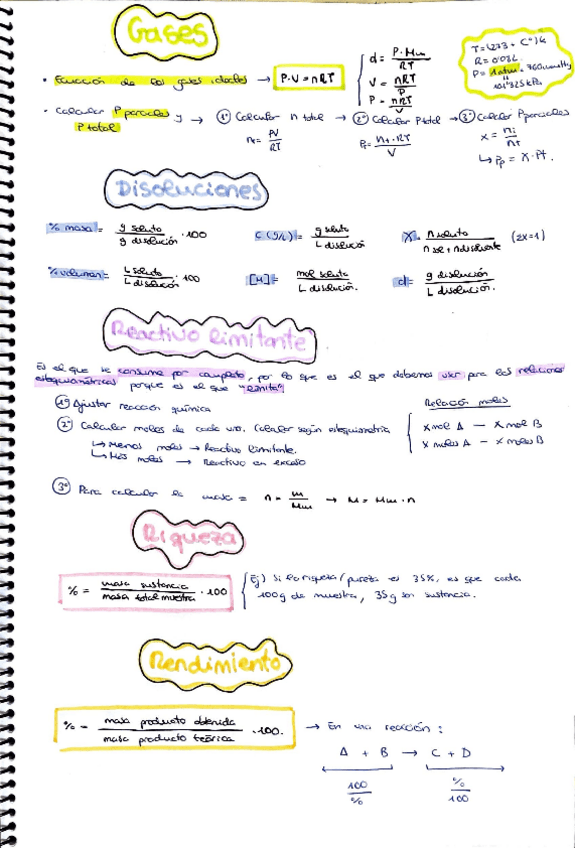 Gases
T = (273 + Cº) K
R = 0'082
P = 1 atm = 760 mmHg
101'325 kPa
• Ecuación de los gases ideales → P·V = nRT
d = P·Mm / RT
V = nRT / P
P = nRT / V
• Calcular P parciales y P total → 1º Calcular n total → 2º Calcular P total → 3º Calcular P parciales
nt = PV / RT
Pt = nt·RT / V
x = ni / nt
↳ Pp = X·Pt.
Disoluciones
% masa = g soluto / g disolución · 100
C (g/L) = g soluto / L disolución
X = n soluto / n sol + n disolvente (Σx=1)
% volumen = L soluto / L disolución · 100
[M] = mol soluto / L disolución.
d = g disolución / L disolución.
Reactivo limitante
Es el que se consume por completo, por lo que es el que debemos usar para las relaciones
estequiométricas porque es el que "limita"
1º Ajustar reacción química
2º Calcular moles de cada uno. Calcular según estequiometría
↳ Menos moles → Reactivo limitante.
↳ Más moles → Reactivo en exceso
Relación moles
X mol A — X mol B
X moles A — X moles B
3º Para calcular la masa = n = m / Mm → M = Mm · n
Riqueza
% = masa sustancia / masa total muestra · 100
Ej) Si la riqueza/pureza es 35%, es que cada
100g de muestra, 35g son sustancia.
Rendimiento
% = masa producto obtenida / masa producto teórica · 100.
→ En una reacción:
A + B → C + D
100 / %
% / 100